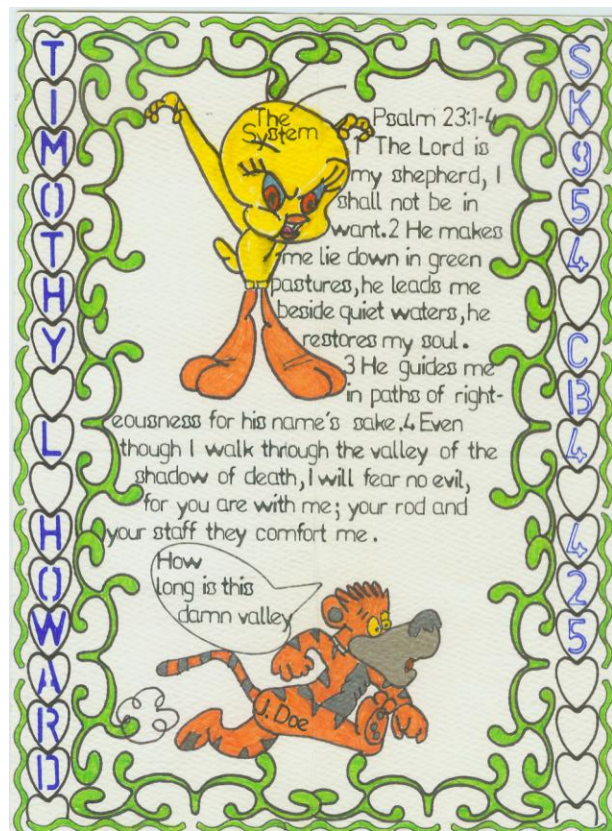 TIMOTHY L HOWARD
The
System
Psalm 23:1-4
1 The Lord is
my shepherd, I
shall not be in
want.2 He makes
me lie down in green
pastures, he leads me
beside quiet waters, he
restores my soul.
3 He guides me
in paths of right-
eousness for his name's sake.4 Even
though I walk through the valley of the
shadow of death, I will fear no evil,
for you are with me; your rod and
your staff they comfort me.
How
long is this
damn valley
J. Doe
SK954 CB4 425